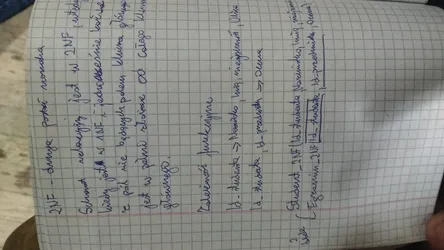 2NF - druga postać normalna
Schemat relacyjny jest w 2NF, wtedy
kiedy jest w 1NF i jednocześnie każde
pole nie będące polem klucza głównego
jest w pełni zależne od całego klucza
głównego.
Zależność funkcyjne
Id_studenta → Nazwisko, imię,
Id_studenta, Id_przedmiotu → Ocena
Student_2NF (Id_studenta, Nazwisko, imię,
Egzamin_2NF (Id_studenta, Id_przedmiotu, Ocena)